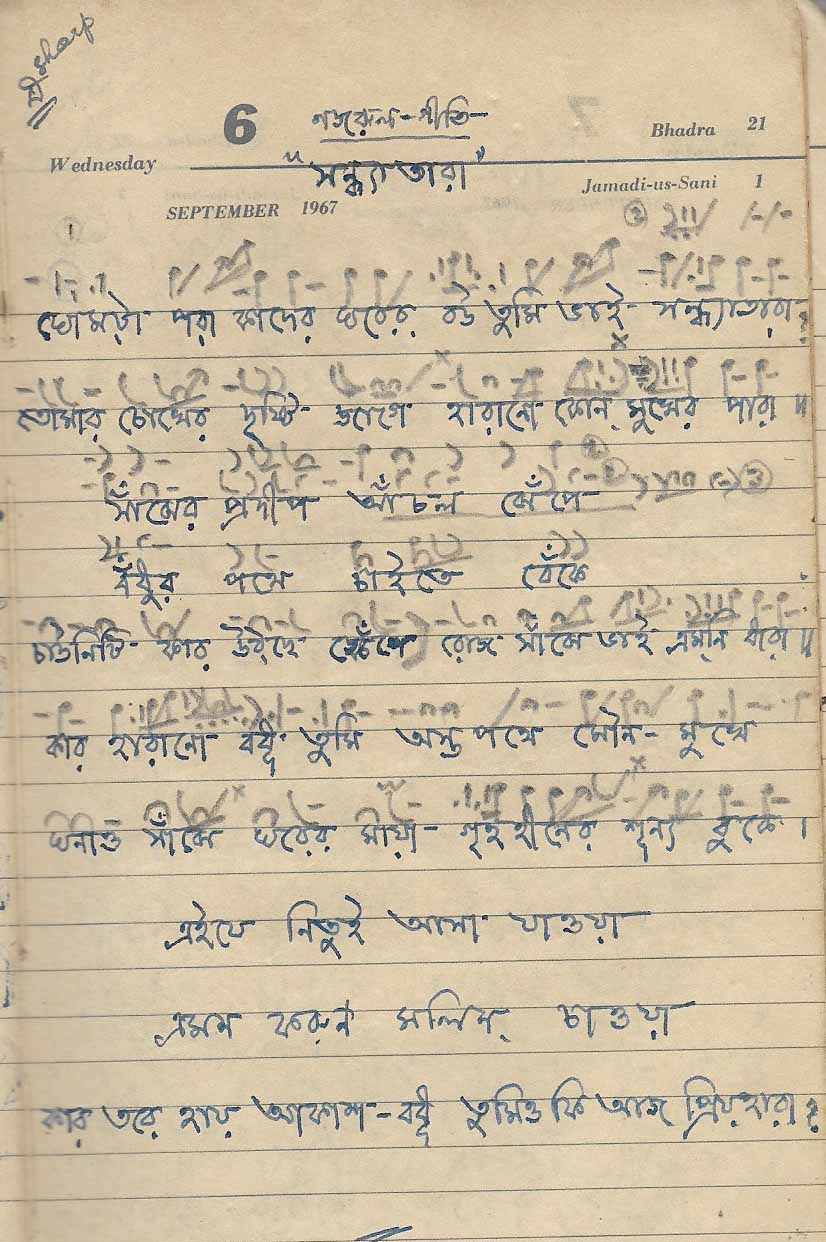 জি sharp
6 নজরুল-গীতি-
Bhadra 21
Wednesday
"সন্ধ্যাতারা"
Jamadi-us-Sani 1
SEPTEMBER 1967
ঘোমটা পরা কাদের ঘরের বউ তুমি ভাই সন্ধ্যাতারা?
তোমার চোখের দৃষ্টি জাগে হারানো কোন্ মুখের পারা॥
সাঁঝের প্রদীপ আঁচল ঝেঁপে
বঁধুর পথে চাইতে বেঁকে
চাউনিটি কার উঠছে কেঁপে রোজ সাঁঝে ভাই এমনি ধারা॥
কার হারানো বধূ তুমি অস্তপথে মৌন-মুখে
ঘনাও সাঁঝে ঘরের মায়া গৃহহীনের শূন্য বুকে।
এইযে নিতুই আসা যাওয়া
এমন করুন মলিন্ চাওয়া
কার তরে হায় আকাশ-বধূ তুমিও কি আজ প্রিয়হারা?